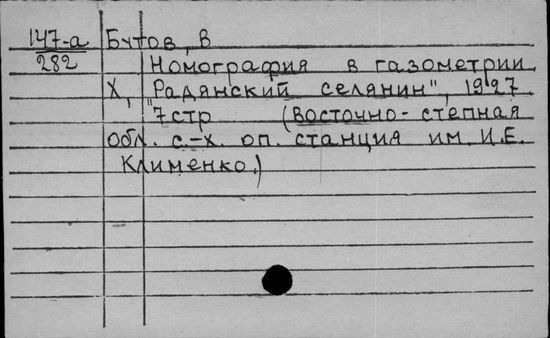 147-а Бутов, В
282
Номография в газометрии
Х, "Радянский селянин", 1927
7стр (восточно-степная
обл. с.-х. оп. станция им. И.Е.
Клименко.)